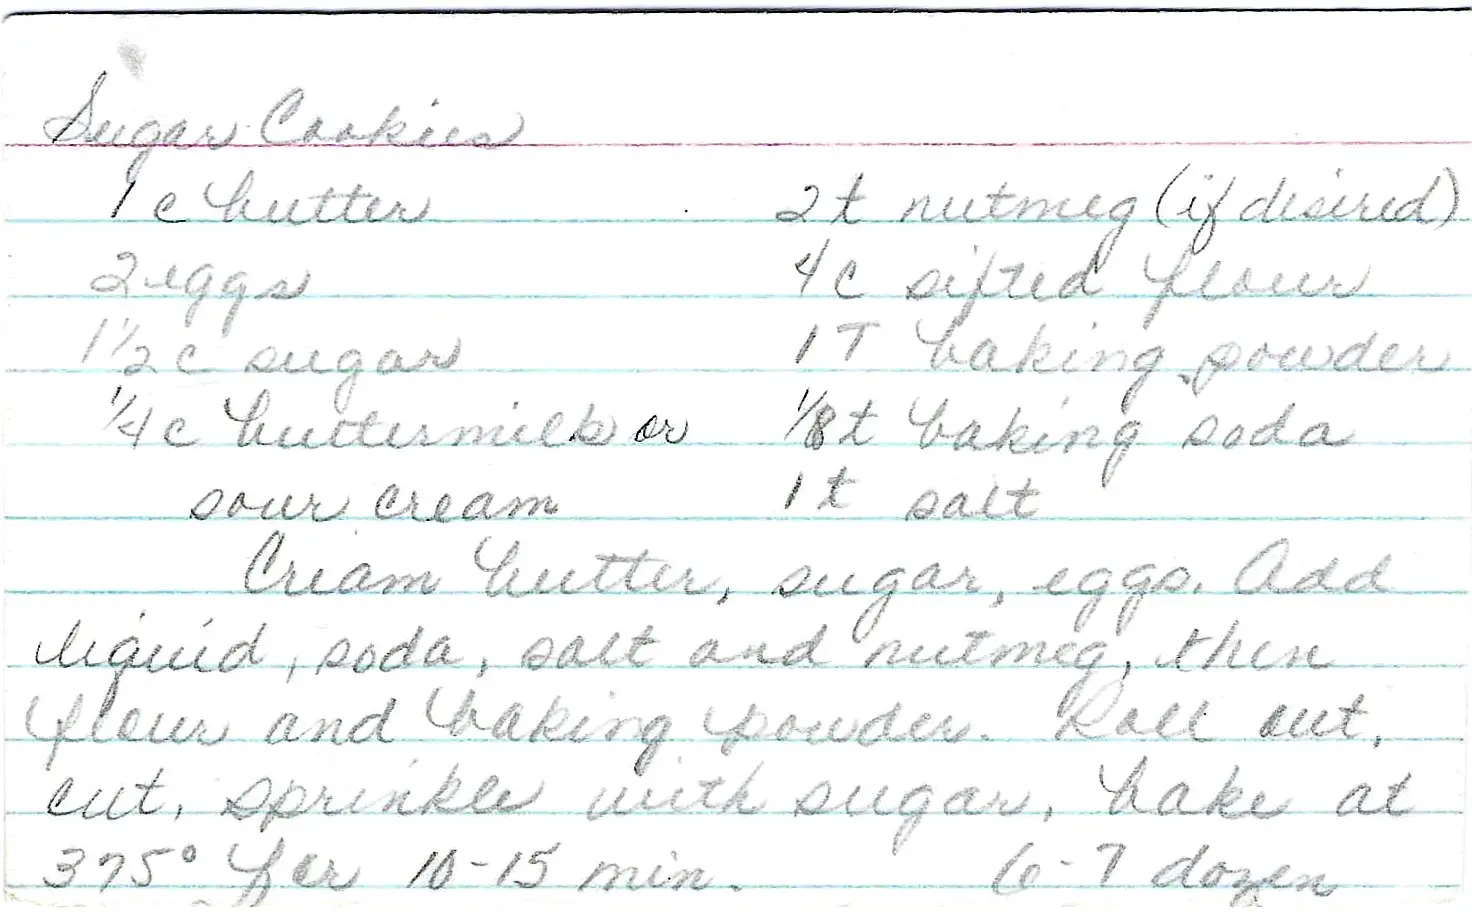 Sugar Cookies
1 c butter 2 t nutmeg (if desired)
2 eggs 4 c sifted flour
1 1/2 c sugar 1 T baking powder
1/4 c buttermilk or 1/8 t baking soda
sour cream 1 t salt
Cream butter, sugar, eggs. Add
liquid, soda, salt and nutmeg, then
flour and baking powder. Roll out,
cut, sprinkle with sugar, bake at
375° for 10-15 min. 6-7 dozen